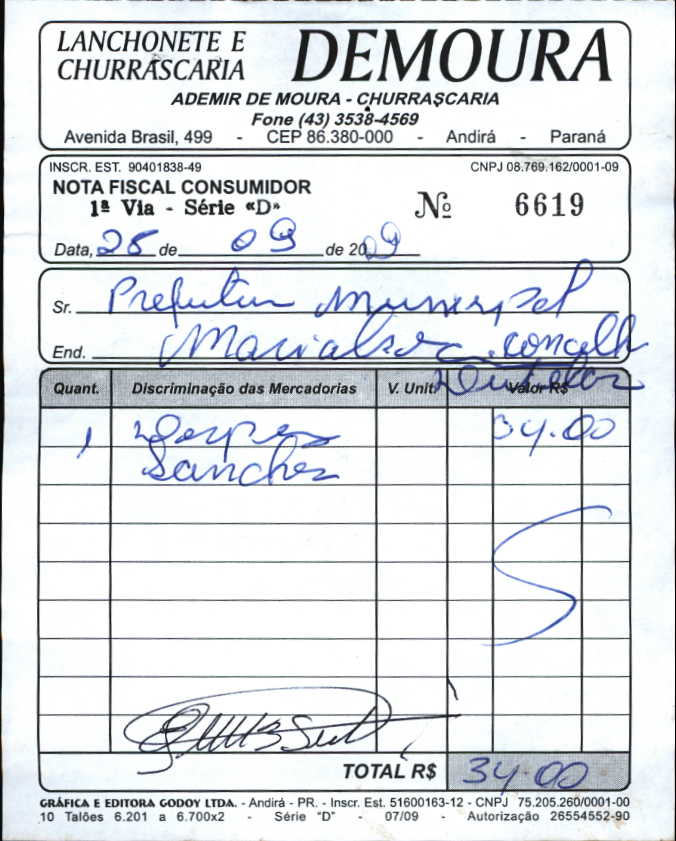 LANCHONETE E
CHURRASCARIA
DEMOURA
ADEMIR DE MOURA - CHURRASCARIA
Fone (43) 3538-4569
Avenida Brasil, 499 - CEP 86.380-000 - Andirá - Paraná
INSCR. EST. 90401838-49
CNPJ 08.769.162/0001-09
NOTA FISCAL CONSUMIDOR
1ª Via - Série «D»
Nº 6619
Data, 28 de 09 de 2009
Sr. Prefeitura Municipal
End.
Quant. Discriminação das Mercadorias V. Unit. Valor R$
1 34.00
Sanches
TOTAL R$ 34.00
GRÁFICA E EDITORA GODOY LTDA. - Andirá - PR. - Inscr. Est. 51600163-12 - CNPJ 75.205.260/0001-00
10 Talões 6.201 a 6.700x2 - Série "D" - 07/09 - Autorização 26554552-90